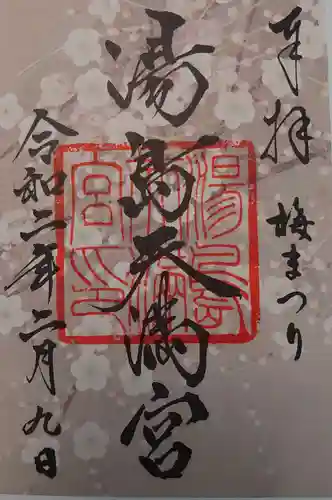 奉拝
梅まつり
湯島天満宮
湯島天満宮印
令和二年二月九日